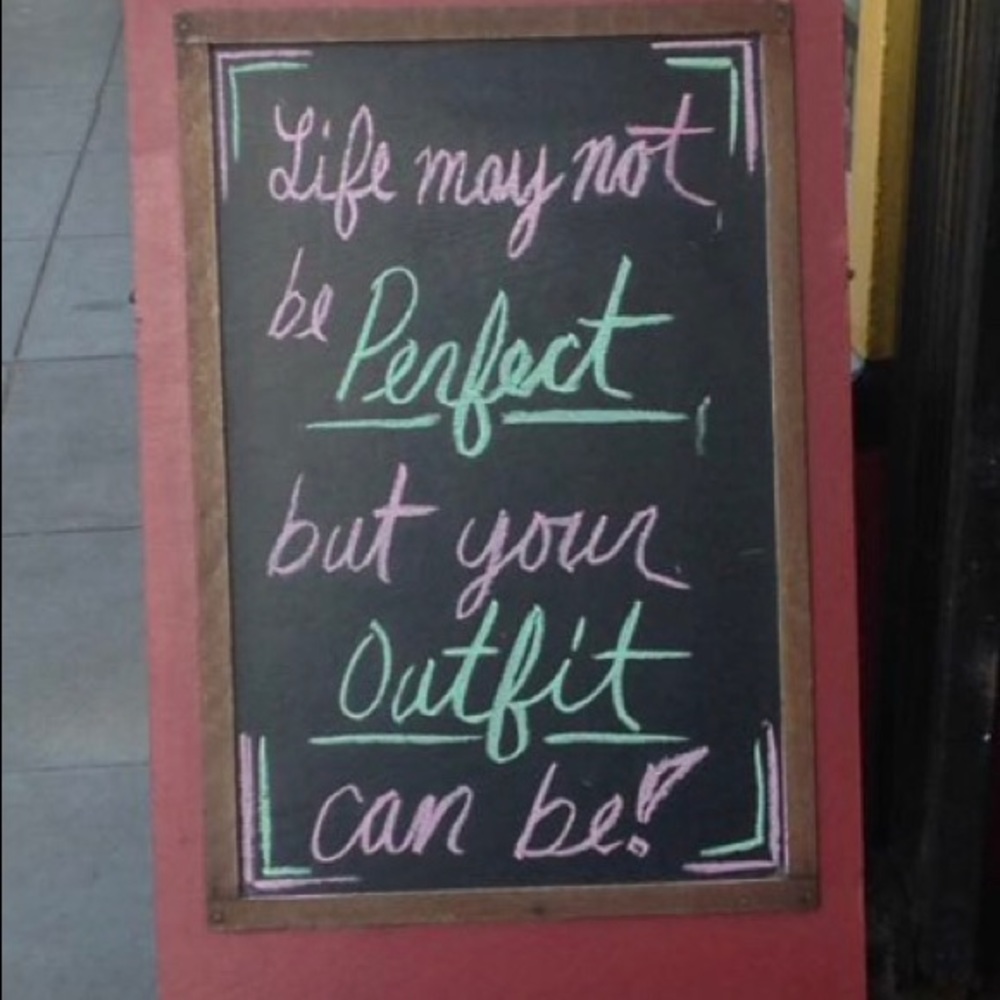 Life may not
be Perfect
but your
Outfit
can be!